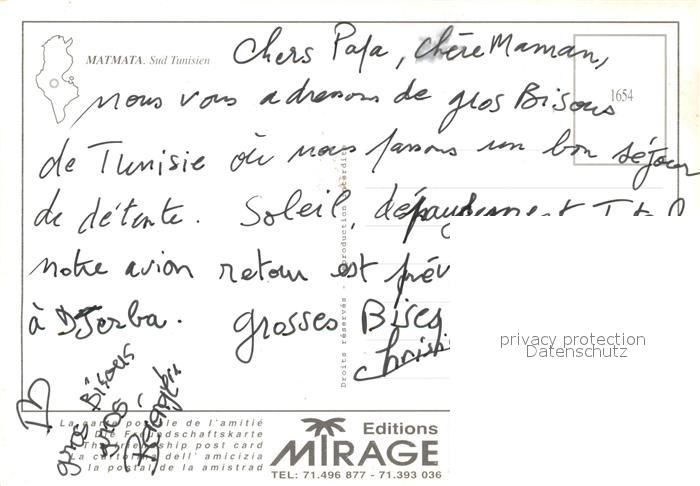 Chers Papa, Chère Maman,
MATMATA. Sud Tunisien
1654
nous vous adressons de gros Bisous
de Tunisie où nous passons un bon séjour
de détente. Soleil, dépaysement
notre avion retour est prév
à Djerba. grosses Bises
Christi
gros Bisous
gros
Droits réservés - Reproduction interdite
privacy protection
Datenschutz
La carte postale de l'amitié
Die Freundschaftskarte
The friendship post card
La cartolina dell' amicizia
la postal de la amistrad
Editions
MIRAGE
TEL: 71.496 877 - 71.393 036